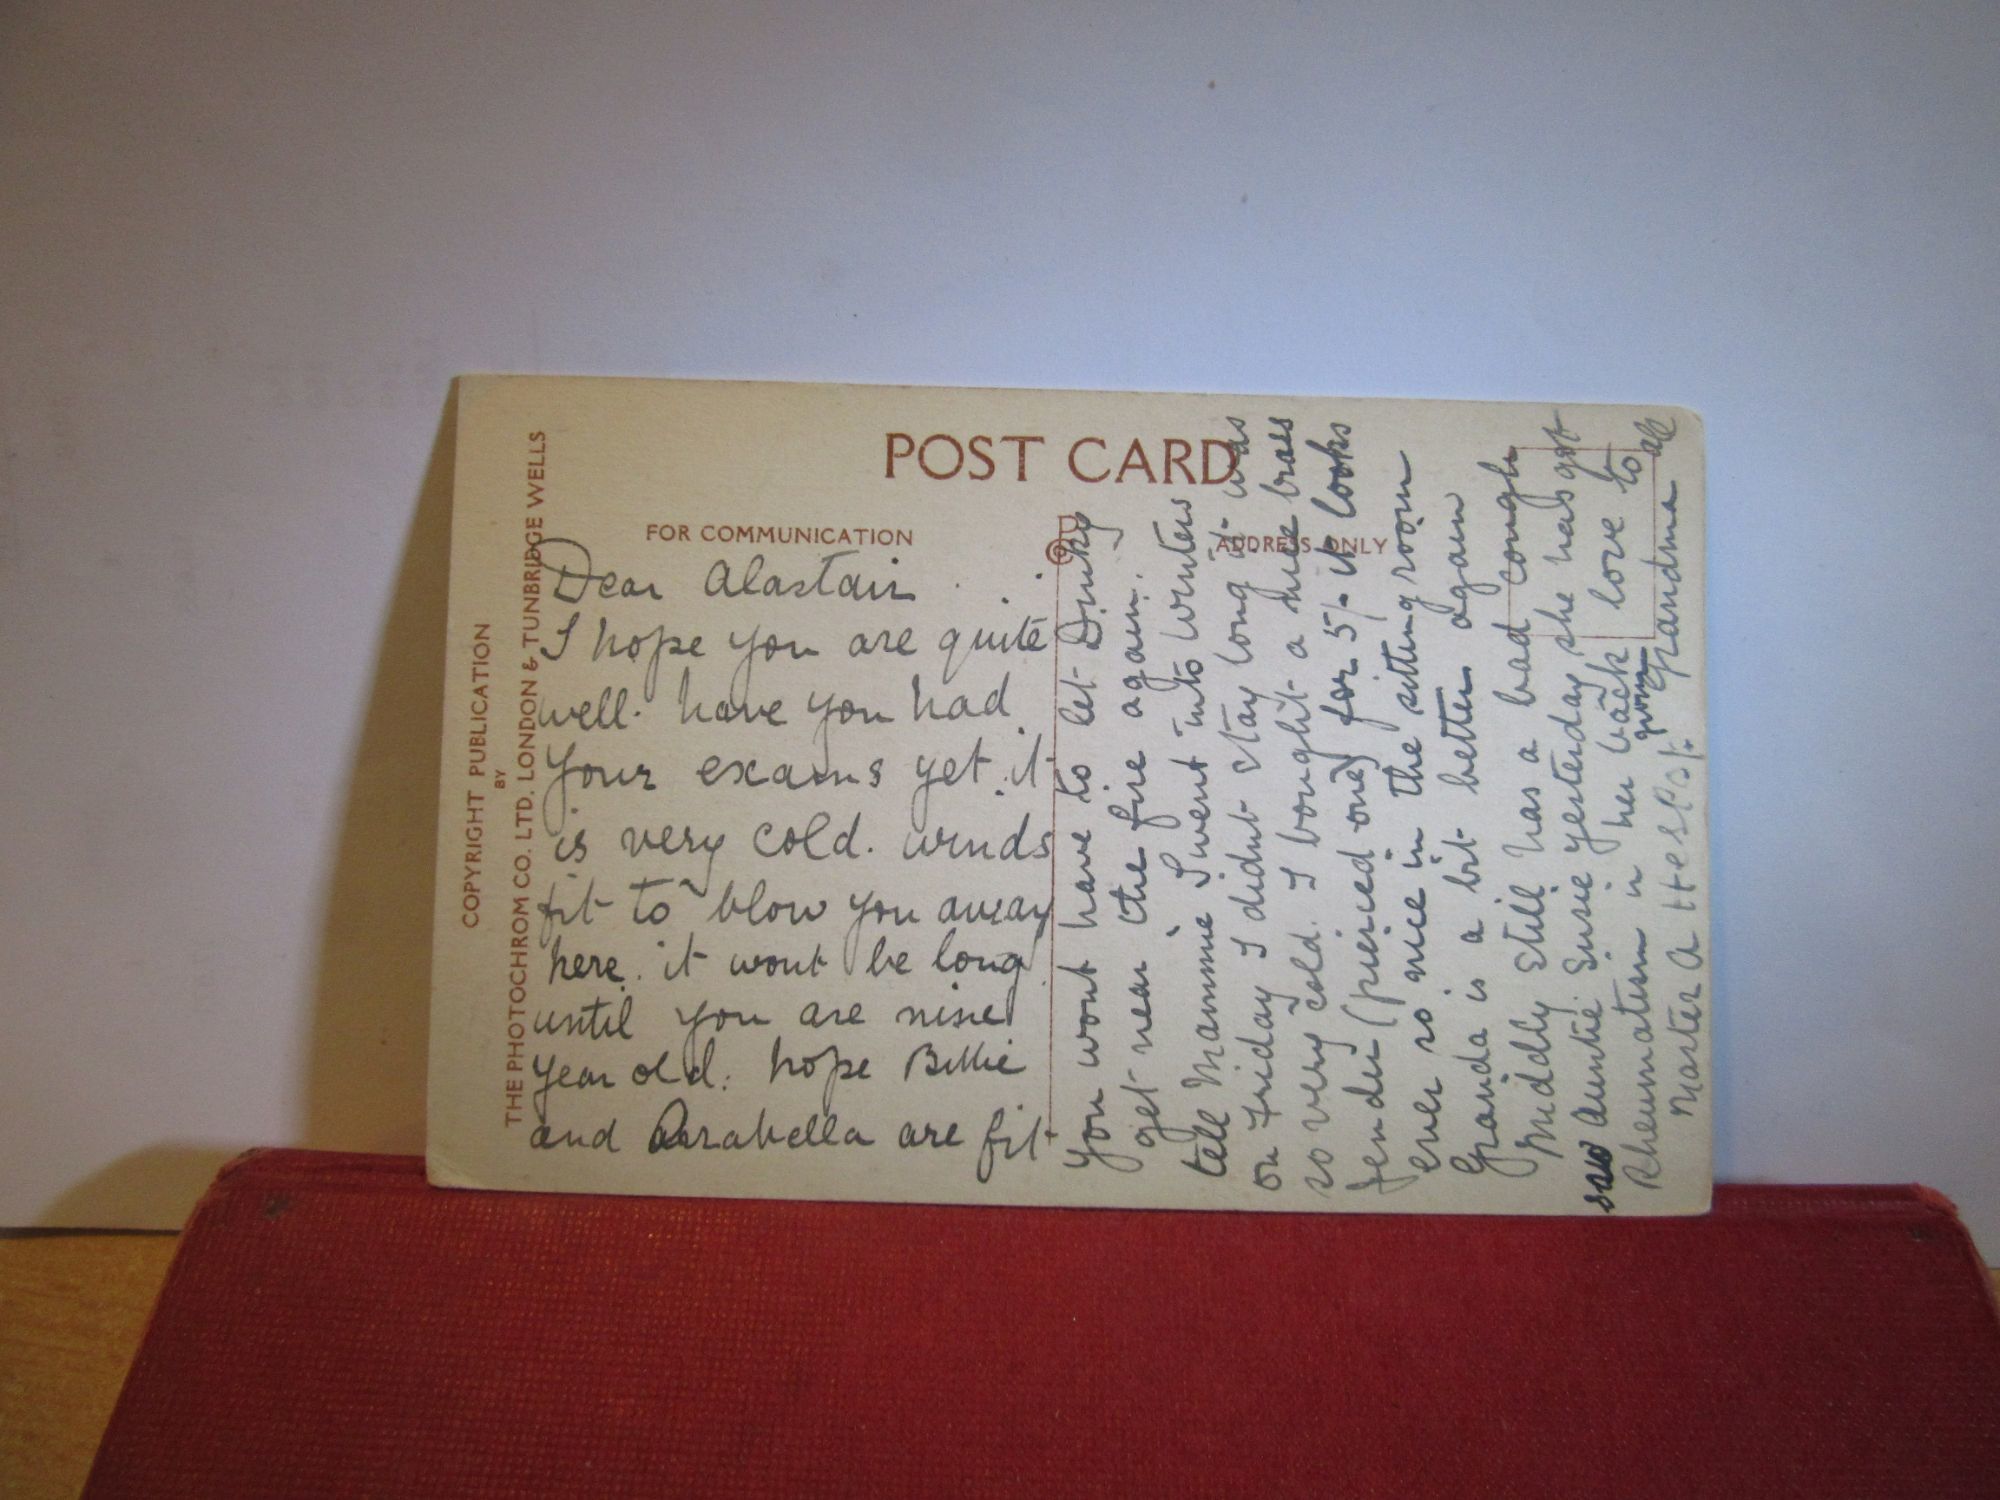 COPYRIGHT PUBLICATION
BY
THE PHOTOCHROM CO. LTD. LONDON & TUNBRIDGE WELLS
POST CARD
FOR COMMUNICATION
ADDRESS ONLY
Dear Alastair
I hope you are quite
well. have you had
your exams yet. it
is very cold. winds
fit to blow you away
here. it wont be long
until you are nine
year old. hope Billie
and Arabella are fit
you wont have to let Dinky
get near the fire again.
tell Mammie I went into Winters
on Friday I didnt stay long it was
so very cold. I bought a nice brass
fender (pierced one) for 5/- it looks
ever so nice in the sitting room
Granda is a bit better again
Middly still has a bad cough
saw Auntie Susie yesterday she has got
Rheumatism in her back love to all
from Grandma
Master A